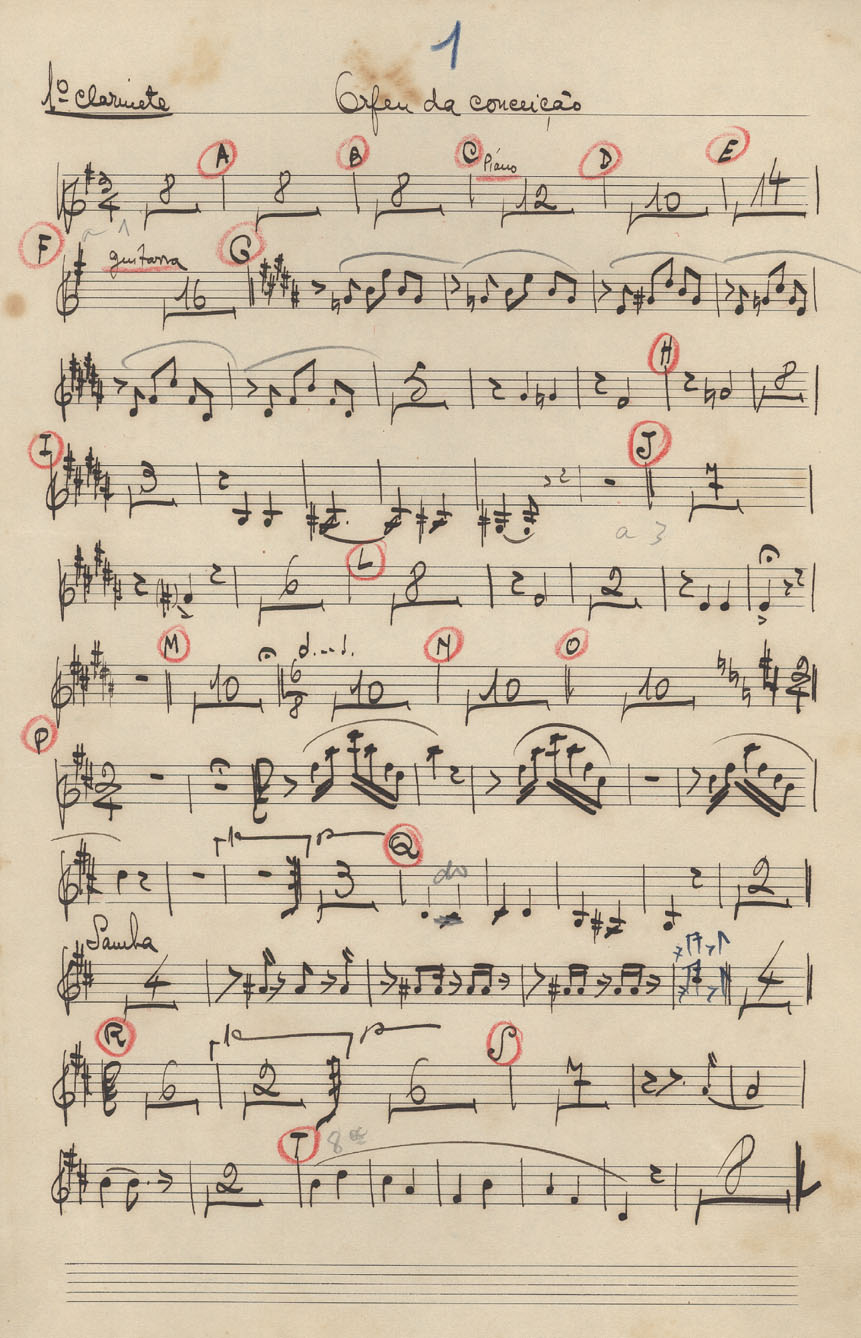 1
1º clarinete Orfeu da conceição
A B C Piano D E
3/4 8 8 8 12 10 14
F a 1 guitarra G
16
H
5 8
I J
3 7
a 3
L
6 8 2
M N O
10 6/8 10 10 10 2/4
P
2/4
1ª 2ª Q
3 do 2
Samba
4 4
R 1ª 2ª S
6 2 6 7
T 8ª
2 8